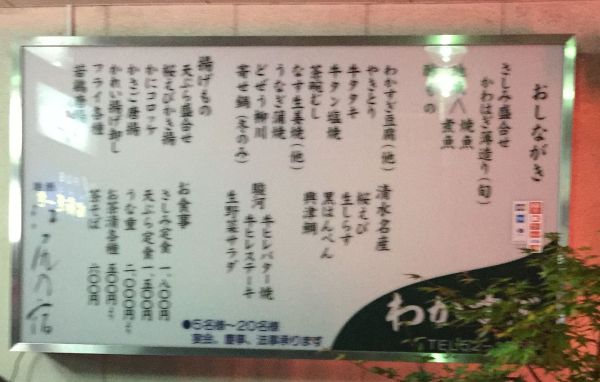 おしながき
さしみ盛合せ
かわはぎ薄造り(旬)
地魚
焼魚
煮魚
酢の物
わかすぎ豆腐(他)
やきとり
牛タタキ
牛タン塩焼
茶碗むし
なす生姜焼(他)
うなぎ蒲焼
どぜう柳川
寄せ鍋(冬のみ)
揚げもの
天ぷら盛合せ
桜えびかき揚
かにコロッケ
かさご唐揚
かれい揚げ卸し
フライ各種
若鶏唐揚
清水名産
桜えび
生しらす
黒はんぺん
興津鯛
駿河
牛ヒレバター焼
牛ヒレステーキ
生野菜サラダ
お食事
さしみ定食 一、八〇〇円
天ぷら定食 一、五〇〇円
うな重 二、〇〇〇円より
お茶漬各種 五〇〇円より
茶そば 六〇〇円
●5名様〜20名様
宴会、慶事、法事承ります
わかすぎ
TEL
の宿